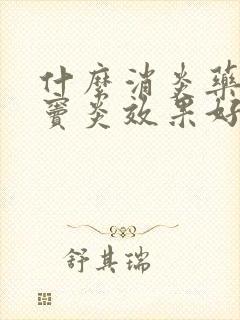 什麼消炎藥
竇炎效果好
舒其瑞